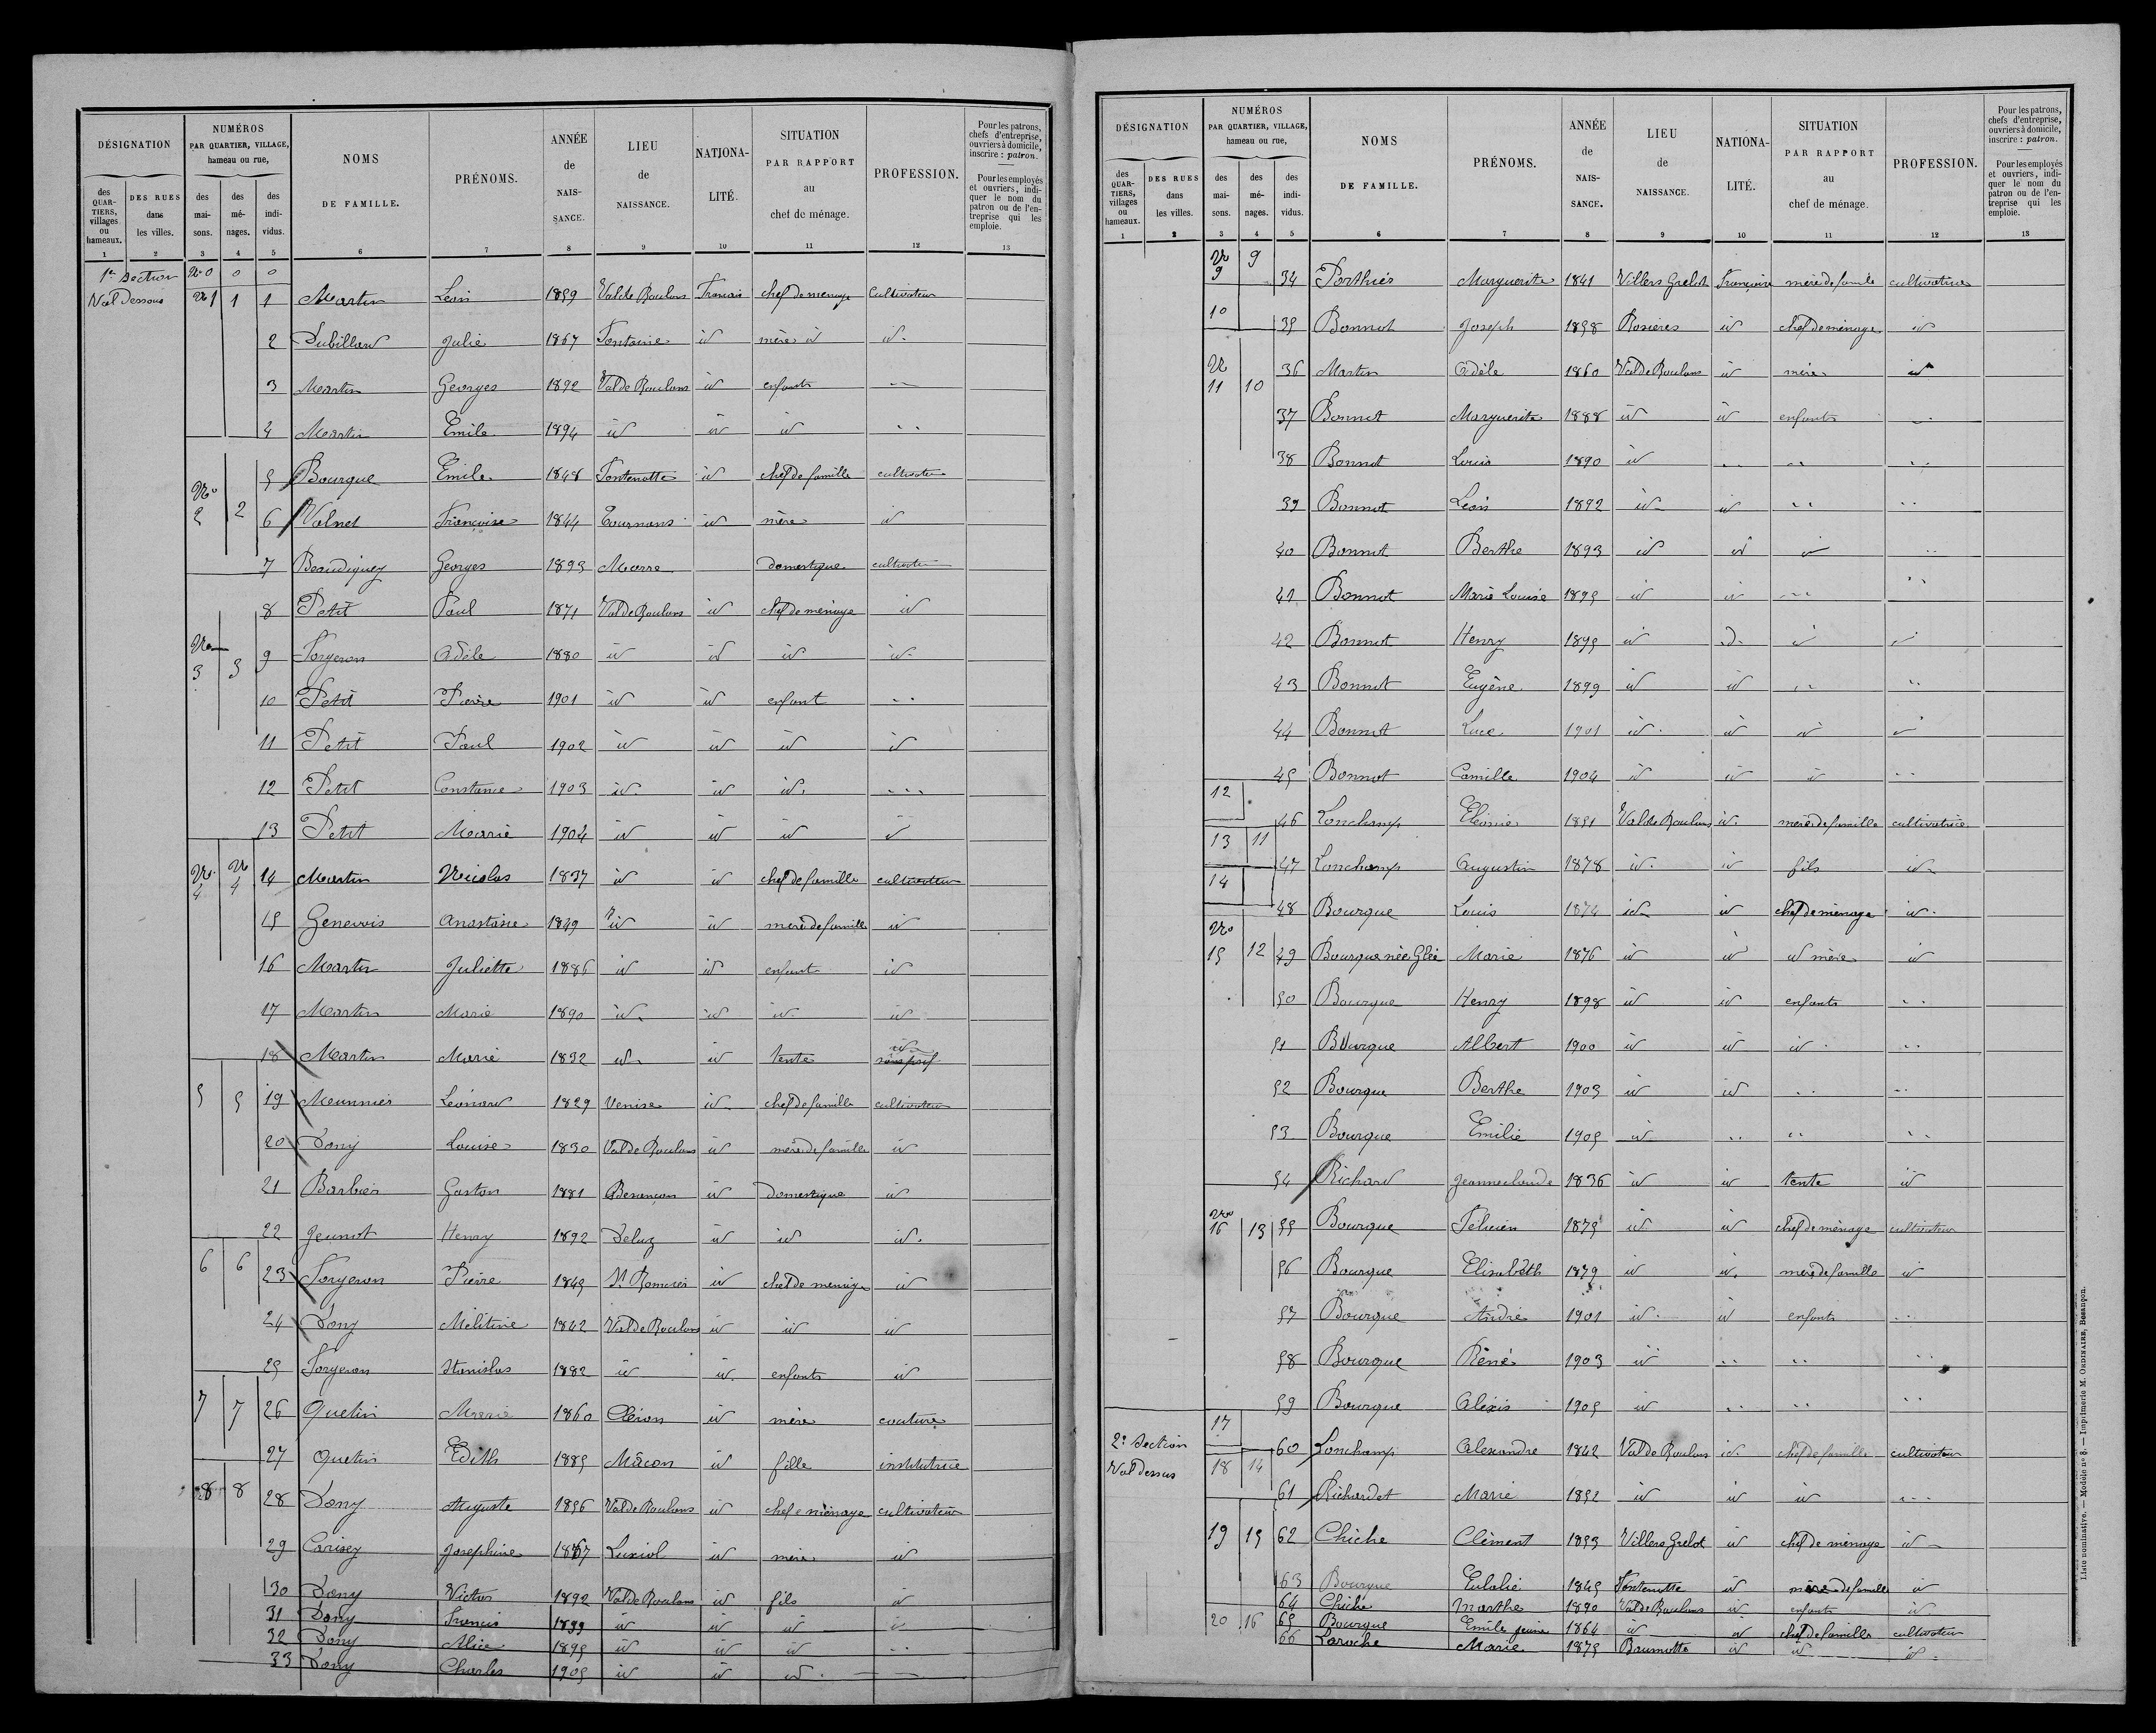 DÉSIGNATION
NUMÉROS
PAR QUARTIER, VILLAGE,
hameau ou rue,
des QUARTIERS, villages ou hameaux.
DES RUES dans les villes.
des maisons.
des ménages.
des individus.
NOMS DE FAMILLE.
PRÉNOMS.
ANNÉE de NAISSANCE.
LIEU de NAISSANCE.
NATIONALITÉ.
SITUATION PAR RAPPORT au chef de ménage.
PROFESSION.
Pour les patrons, chefs d'entreprise, ouvriers à domicile, inscrire : patron.
Pour les employés et ouvriers, indiquer le nom du patron ou de l'entreprise qui les emploie.
1 2 3 4 5 6 7 8 9 10 11 12 13
1re Section No 0 0 0
Val Dessous No 1 1 1 Martin Léon 1859 Val de Roulans Francais chef de menage Cultivateur
2 Dubillard Julie 1867 Fontaine id mère id id
3 Martin Georges 1892 Val de Roulans id enfants "
4 Martin Emile 1894 id id id "
No 2 2 5 Bourque Emile 1848 Fontenotte id chef de famille cultivateur
6 Valnet Françoise 1844 Tournans id mère id
7 Beaudiquey Georges 1893 Morre domestique cultivateur
No 3 3 8 Petit Paul 1871 Val de Roulans id chef de ménage id
9 Forgeron Adèle 1880 id id id id
10 Petit Pierre 1901 id id enfant "
11 Petit Paul 1902 id id id id
12 Petit Constance 1903 id id id "
13 Petit Marie 1904 id id id id
No 4 No 4 14 Martin Nicolas 1837 id id chef de famille cultivateur
15 Genevois Anastasie 1849 id id mère de famille id
16 Martin Juliette 1886 id id enfant id
17 Martin Marie 1890 id id id id
18 Martin Marie 1832 id id tente id sans prof
5 5 19 Meunnier Léonard 1829 Venise id chef de famille cultivateur
20 Dony Louise 1830 Val de Roulans id mère de famille id
21 Barbier Gaston 1881 Besançon id Domestique id
22 Jeunot Henry 1892 Deluz id id id
6 6 23 Forgeron Pierre 1845 chef de menage id
24 Dony Mélitine 1842 Val de Roulans id id id
25 Forgeron Stanislas 1882 id id enfants id
7 7 26 Quetin Marie 1860 Cléron id mère couture
27 Quetin Edith 1885 Mâcon id fille institutrice
8 8 28 Dony Auguste 1856 Val de Roulans id chef e ménage cultivateur
29 Carisey Josephine 1867 Luxiol id mère id
30 Dony Victor 1892 Val de Roulans id fils id
31 Dony Francis 1893 id id id id
32 Dony Alice 1895 id id id "
33 Dony Charles 1905 id id id
DÉSIGNATION
NUMÉROS
PAR QUARTIER, VILLAGE,
hameau ou rue,
des QUARTIERS, villages ou hameaux.
DES RUES dans les villes.
des maisons.
des ménages.
des individus.
NOMS DE FAMILLE.
PRÉNOMS.
ANNÉE de NAISSANCE.
LIEU de NAISSANCE.
NATIONALITÉ.
SITUATION PAR RAPPORT au chef de ménage.
PROFESSION.
Pour les patrons, chefs d'entreprise, ouvriers à domicile, inscrire : patron.
Pour les employés et ouvriers, indiquer le nom du patron ou de l'entreprise qui les emploie.
1 2 3 4 5 6 7 8 9 10 11 12 13
No 9 9 34 Porthiès Marguerite 1841 Villers Grelot Française mère de famile cultivatrice
10 35 Bonnot Joseph 1858 Rosières id chef de ménage id
No 11 10 36 Martin Adèle 1860 Val de Roulans id mère id
37 Bonnot Marguerite 1888 id id enfants "
38 Bonnot Louis 1890 id " " "
39 Bonnot Léon 1892 id id " "
40 Bonnot Berthe 1893 id id id "
41 Bonnot Marie Louise 1895 id id " "
42 Bonnot Henry 1895 id d id id
43 Bonnot Eugène 1899 id id " "
44 Bonnot Luce 1901 id id id id
45 Bonnot Camille 1904 id id id "
12
46 Lonchamp Eléonie 1851 Val de Roulans id mère de famille cultivatrice
13 11
47 Lonchamp Augustin 1878 id id fils id
14
48 Bourque Louis 1874 id id chef de ménage id
No 15 12 49 Bourque née Glée Marie 1876 id id id mère id
50 Bourque Henry 1898 id id enfants "
51 Bourque Albert 1900 id id id "
52 Bourque Berthe 1903 id id " "
53 Bourque Emilie 1905 id " " "
54 Richard Jeanne claude 1836 id id tente id
No 16 13 55 Bourque Félicien 1875 id id chef de ménage cultivateur
56 Bourque Elisabeth 1879 id id mère de famille id
57 Bourque André 1901 id id enfants "
58 Bourque Réné 1903 id " " "
59 Bourque Alexis 1905 id " " "
17
2e Section
Val dessus 18 14 60 Lonchamp Alexandre 1842 Val de Roulans id chef de famille cultivateur
61 Richardet Marie 1852 id id id "
19 15 62 Chiche Clément 1853 Villers Grelot id chef de ménage id
63 Bourque Eulalie 1845 Fontenotte id mère de famille id
64 Chiche Marthe 1890 Val de Roulans id enfants id
20 16 65 Bourque Emile jeune 1864 id id chef de famille cultivateur
66 Laroche Marie 1875 Braumotte id id id
Liste nominative. — Modèle no 8. — Imprimerie M. ORDINAIRE, Besançon.